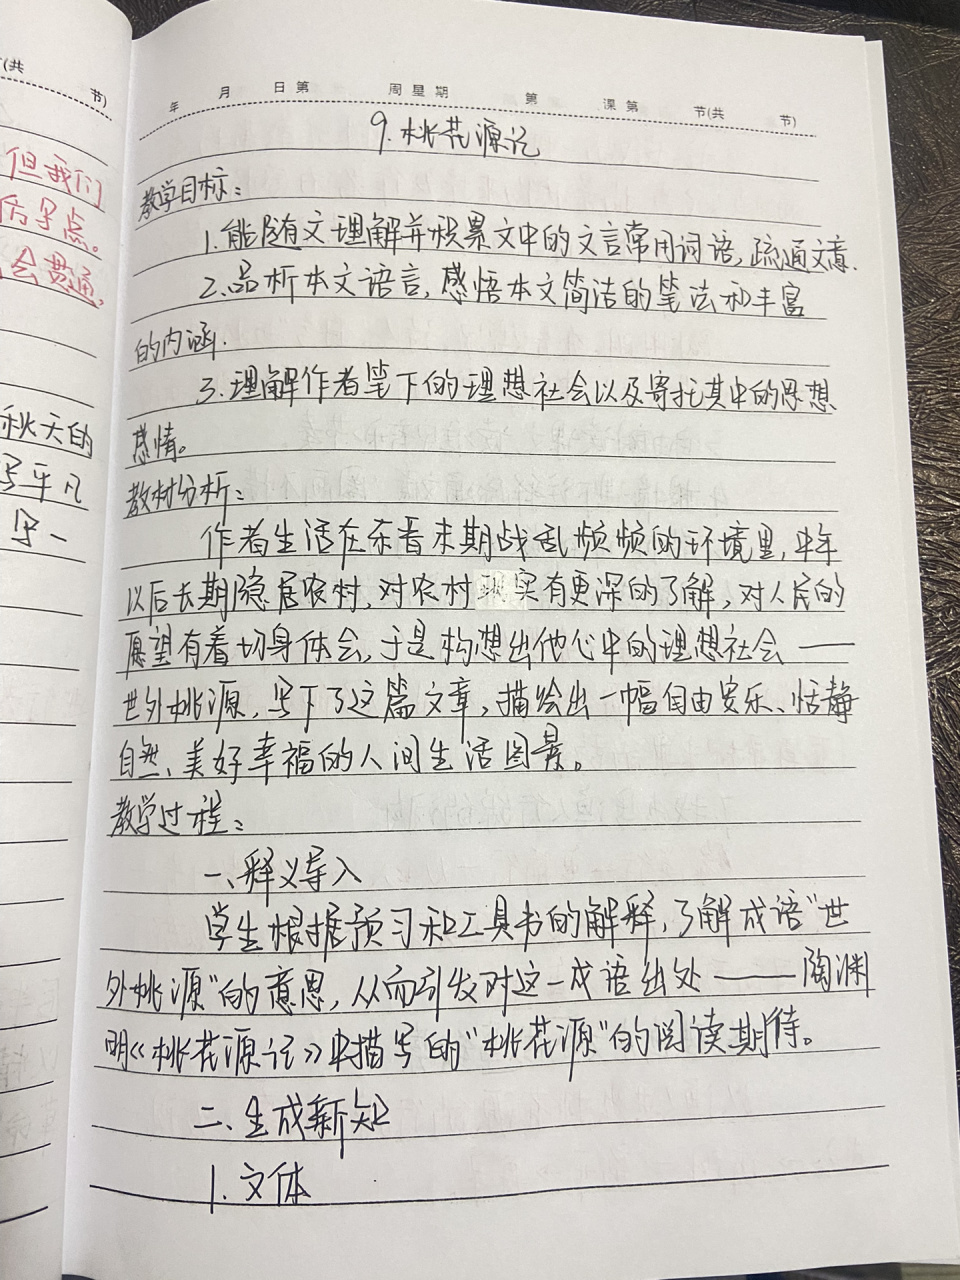 (共 节)
但我们
后早点。
会贯通。
秋天的
写平凡
写一
年 月 日 第 周 星期 第 课 第 节(共 节)
9.桃花源记
教学目标：
1.能随文理解并积累文中的文言常用词语,疏通文意.
2.品析本文语言,感悟本文简洁的笔法和丰富
的内涵.
3.理解作者笔下的理想社会以及寄托其中的思想
感情。
教材分析：
作者生活在东晋末期战乱频频的环境里,中年
以后长期隐居农村,对农村现实有更深的了解,对人民的
愿望有着切身体会,于是构想出他心中的理想社会——
世外桃源,写下了这篇文章,描绘出一幅自由安乐、恬静
自然、美好幸福的人间生活图景。
教学过程：
一、释义导入
学生根据预习和工具书的解释,了解成语“世
外桃源”的意思,从而引发对这一成语出处——陶渊
明《桃花源记》中描写的“桃花源”的阅读期待。
二、生成新知
1.文体